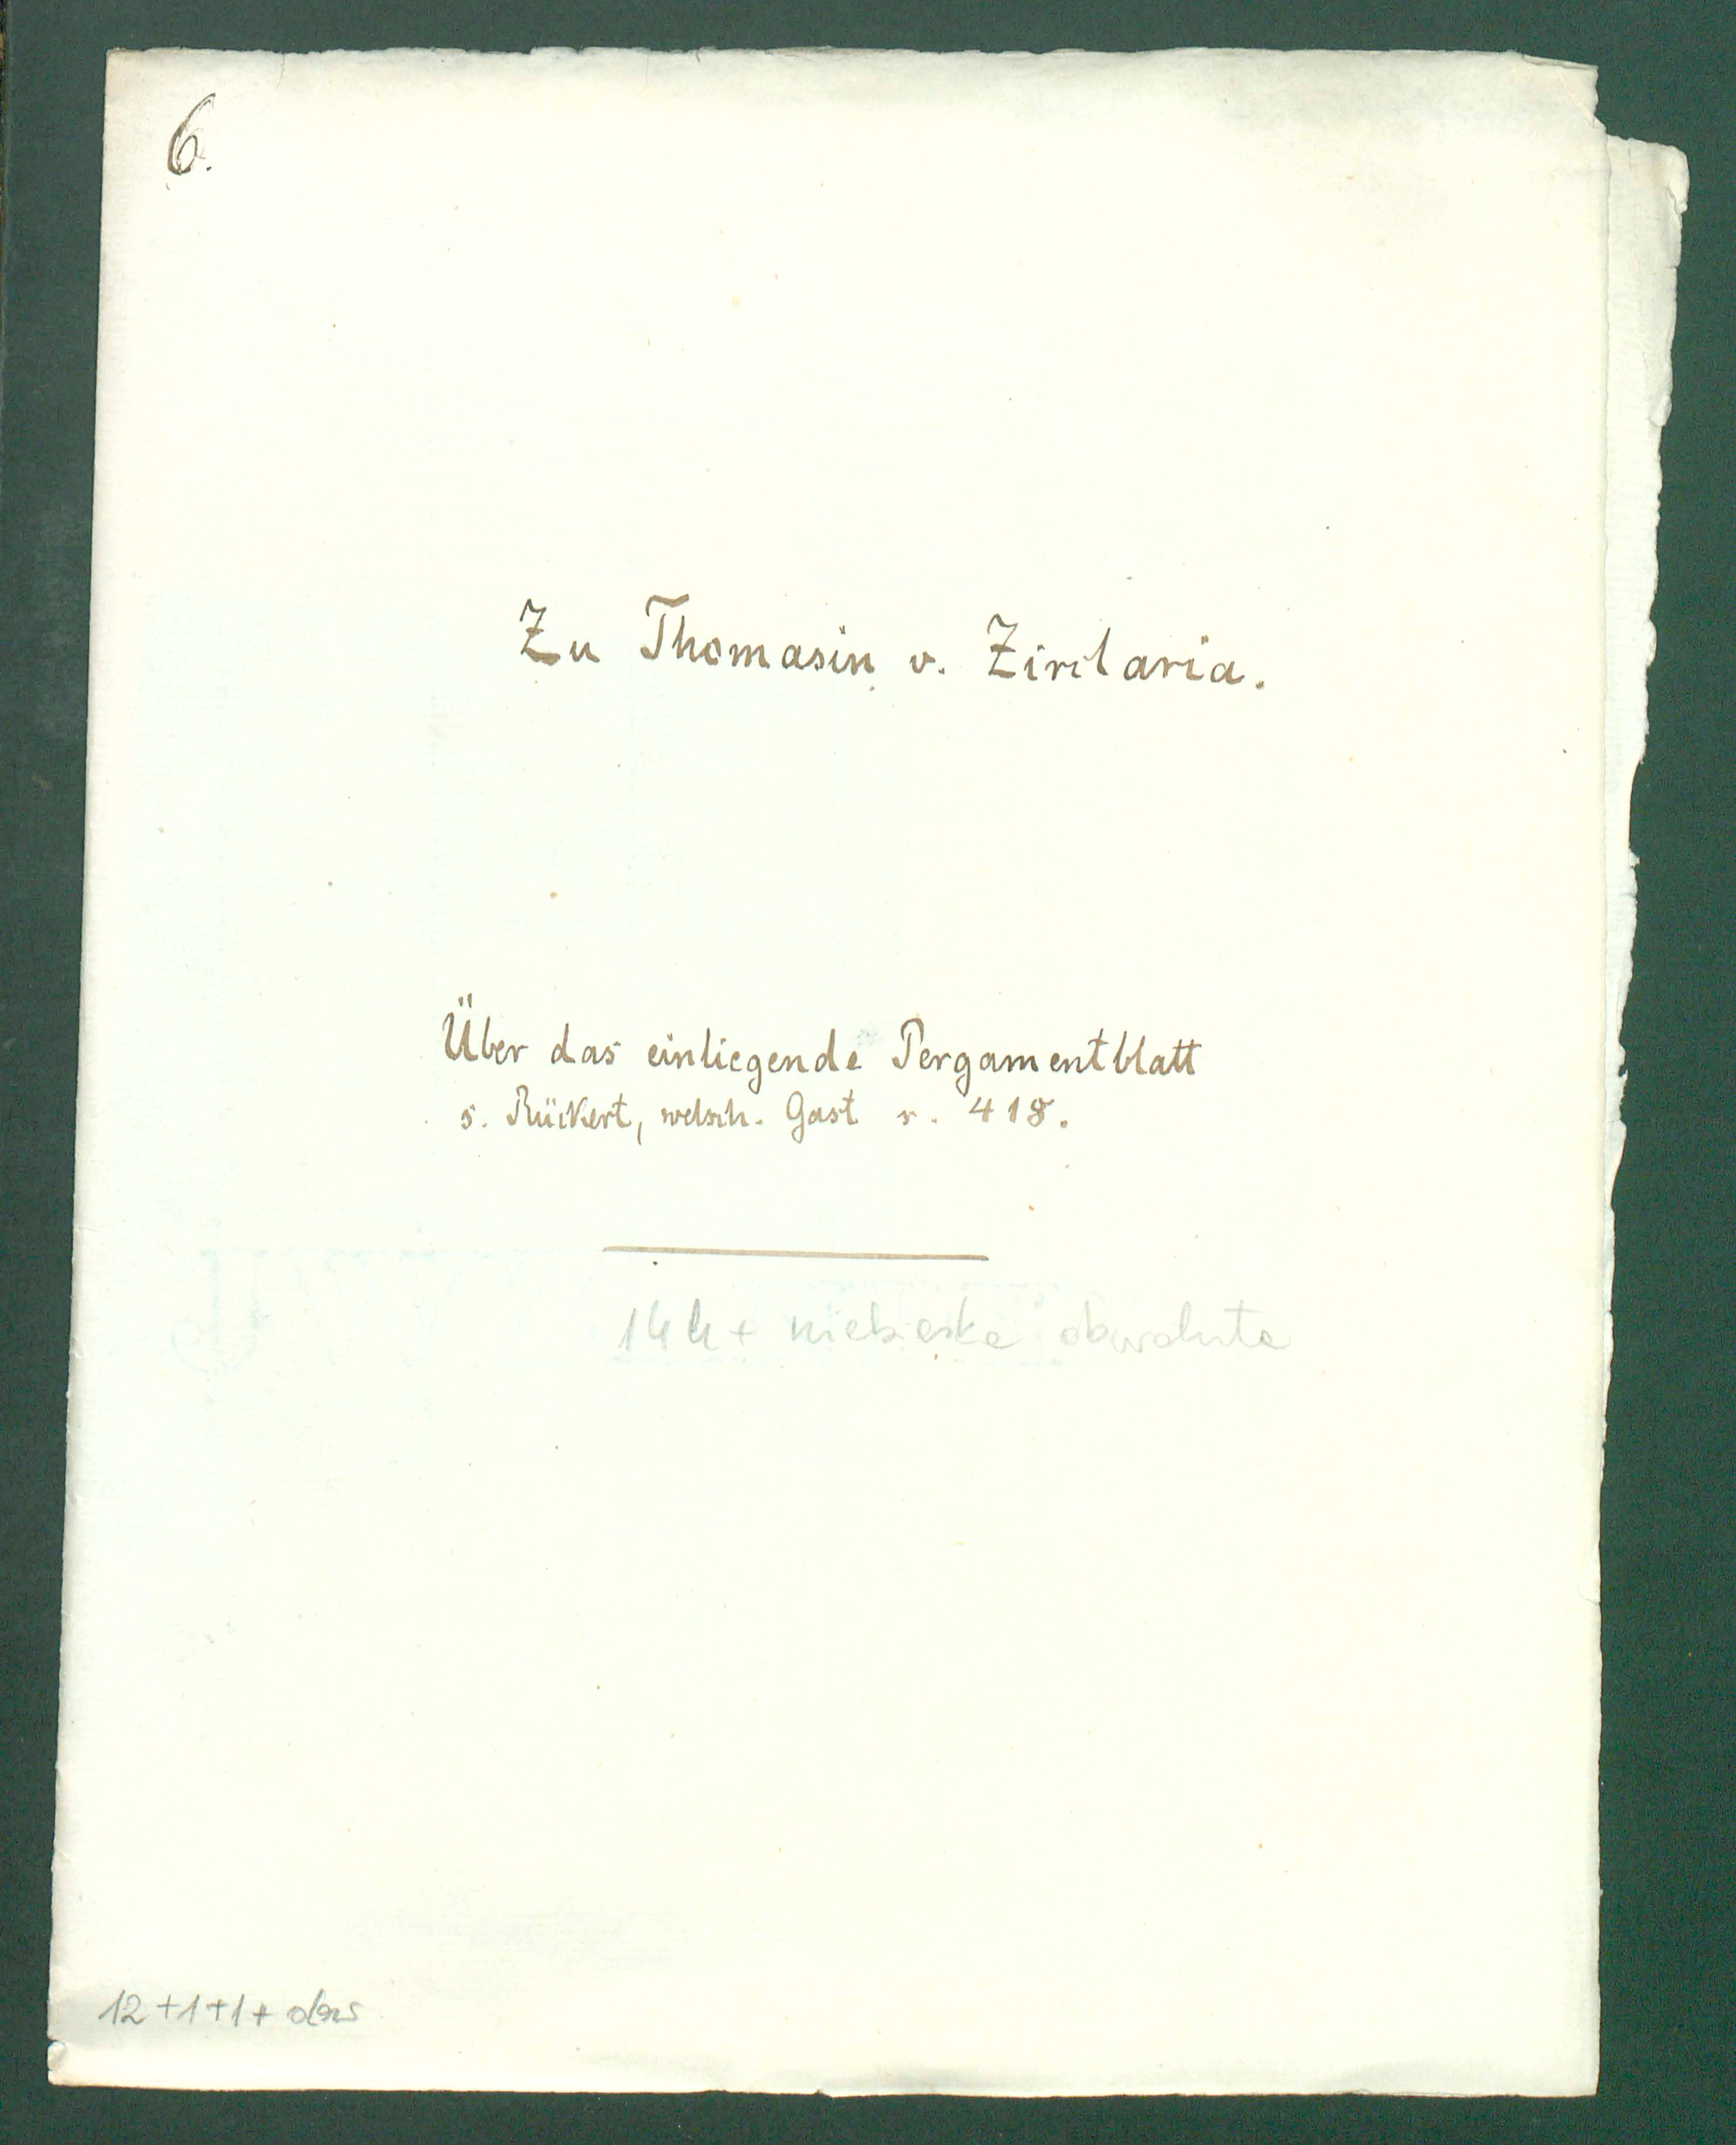 6.
Zu Thomasin v. Zirclaria.
Über das einliegende Pergamentblatt
s. Rückert, welsch. Gast s. 418.
14 k + niebieska obwoluta
12+1+1+